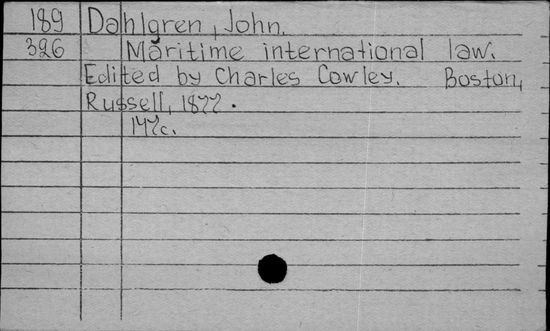 189 Dahlgren, John.
326 Maritime international law.
Edited by Charles Cowley. Boston,
Russell, 1877.
147c.